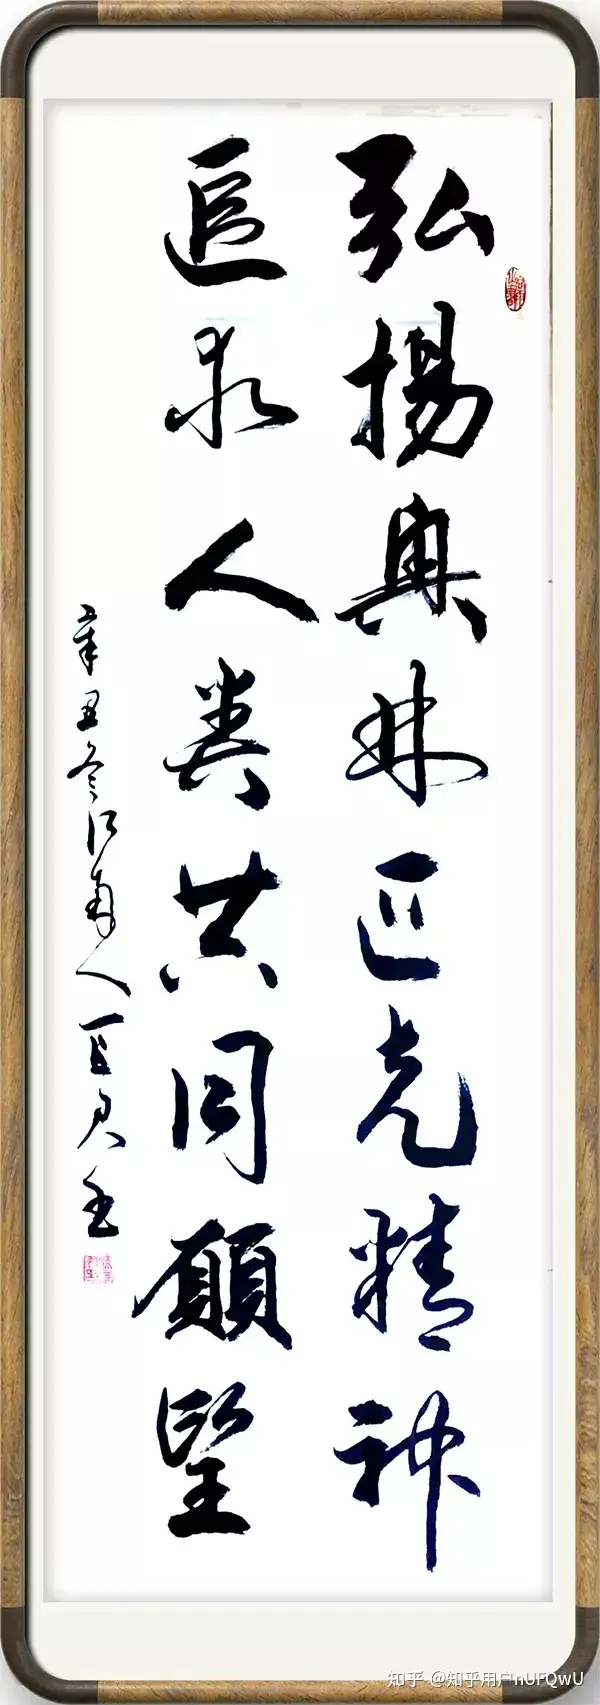 弘揚奧林匹克精神
追求人类共同願望
辛丑冬江南人
知乎 @知乎用户nUFQwU